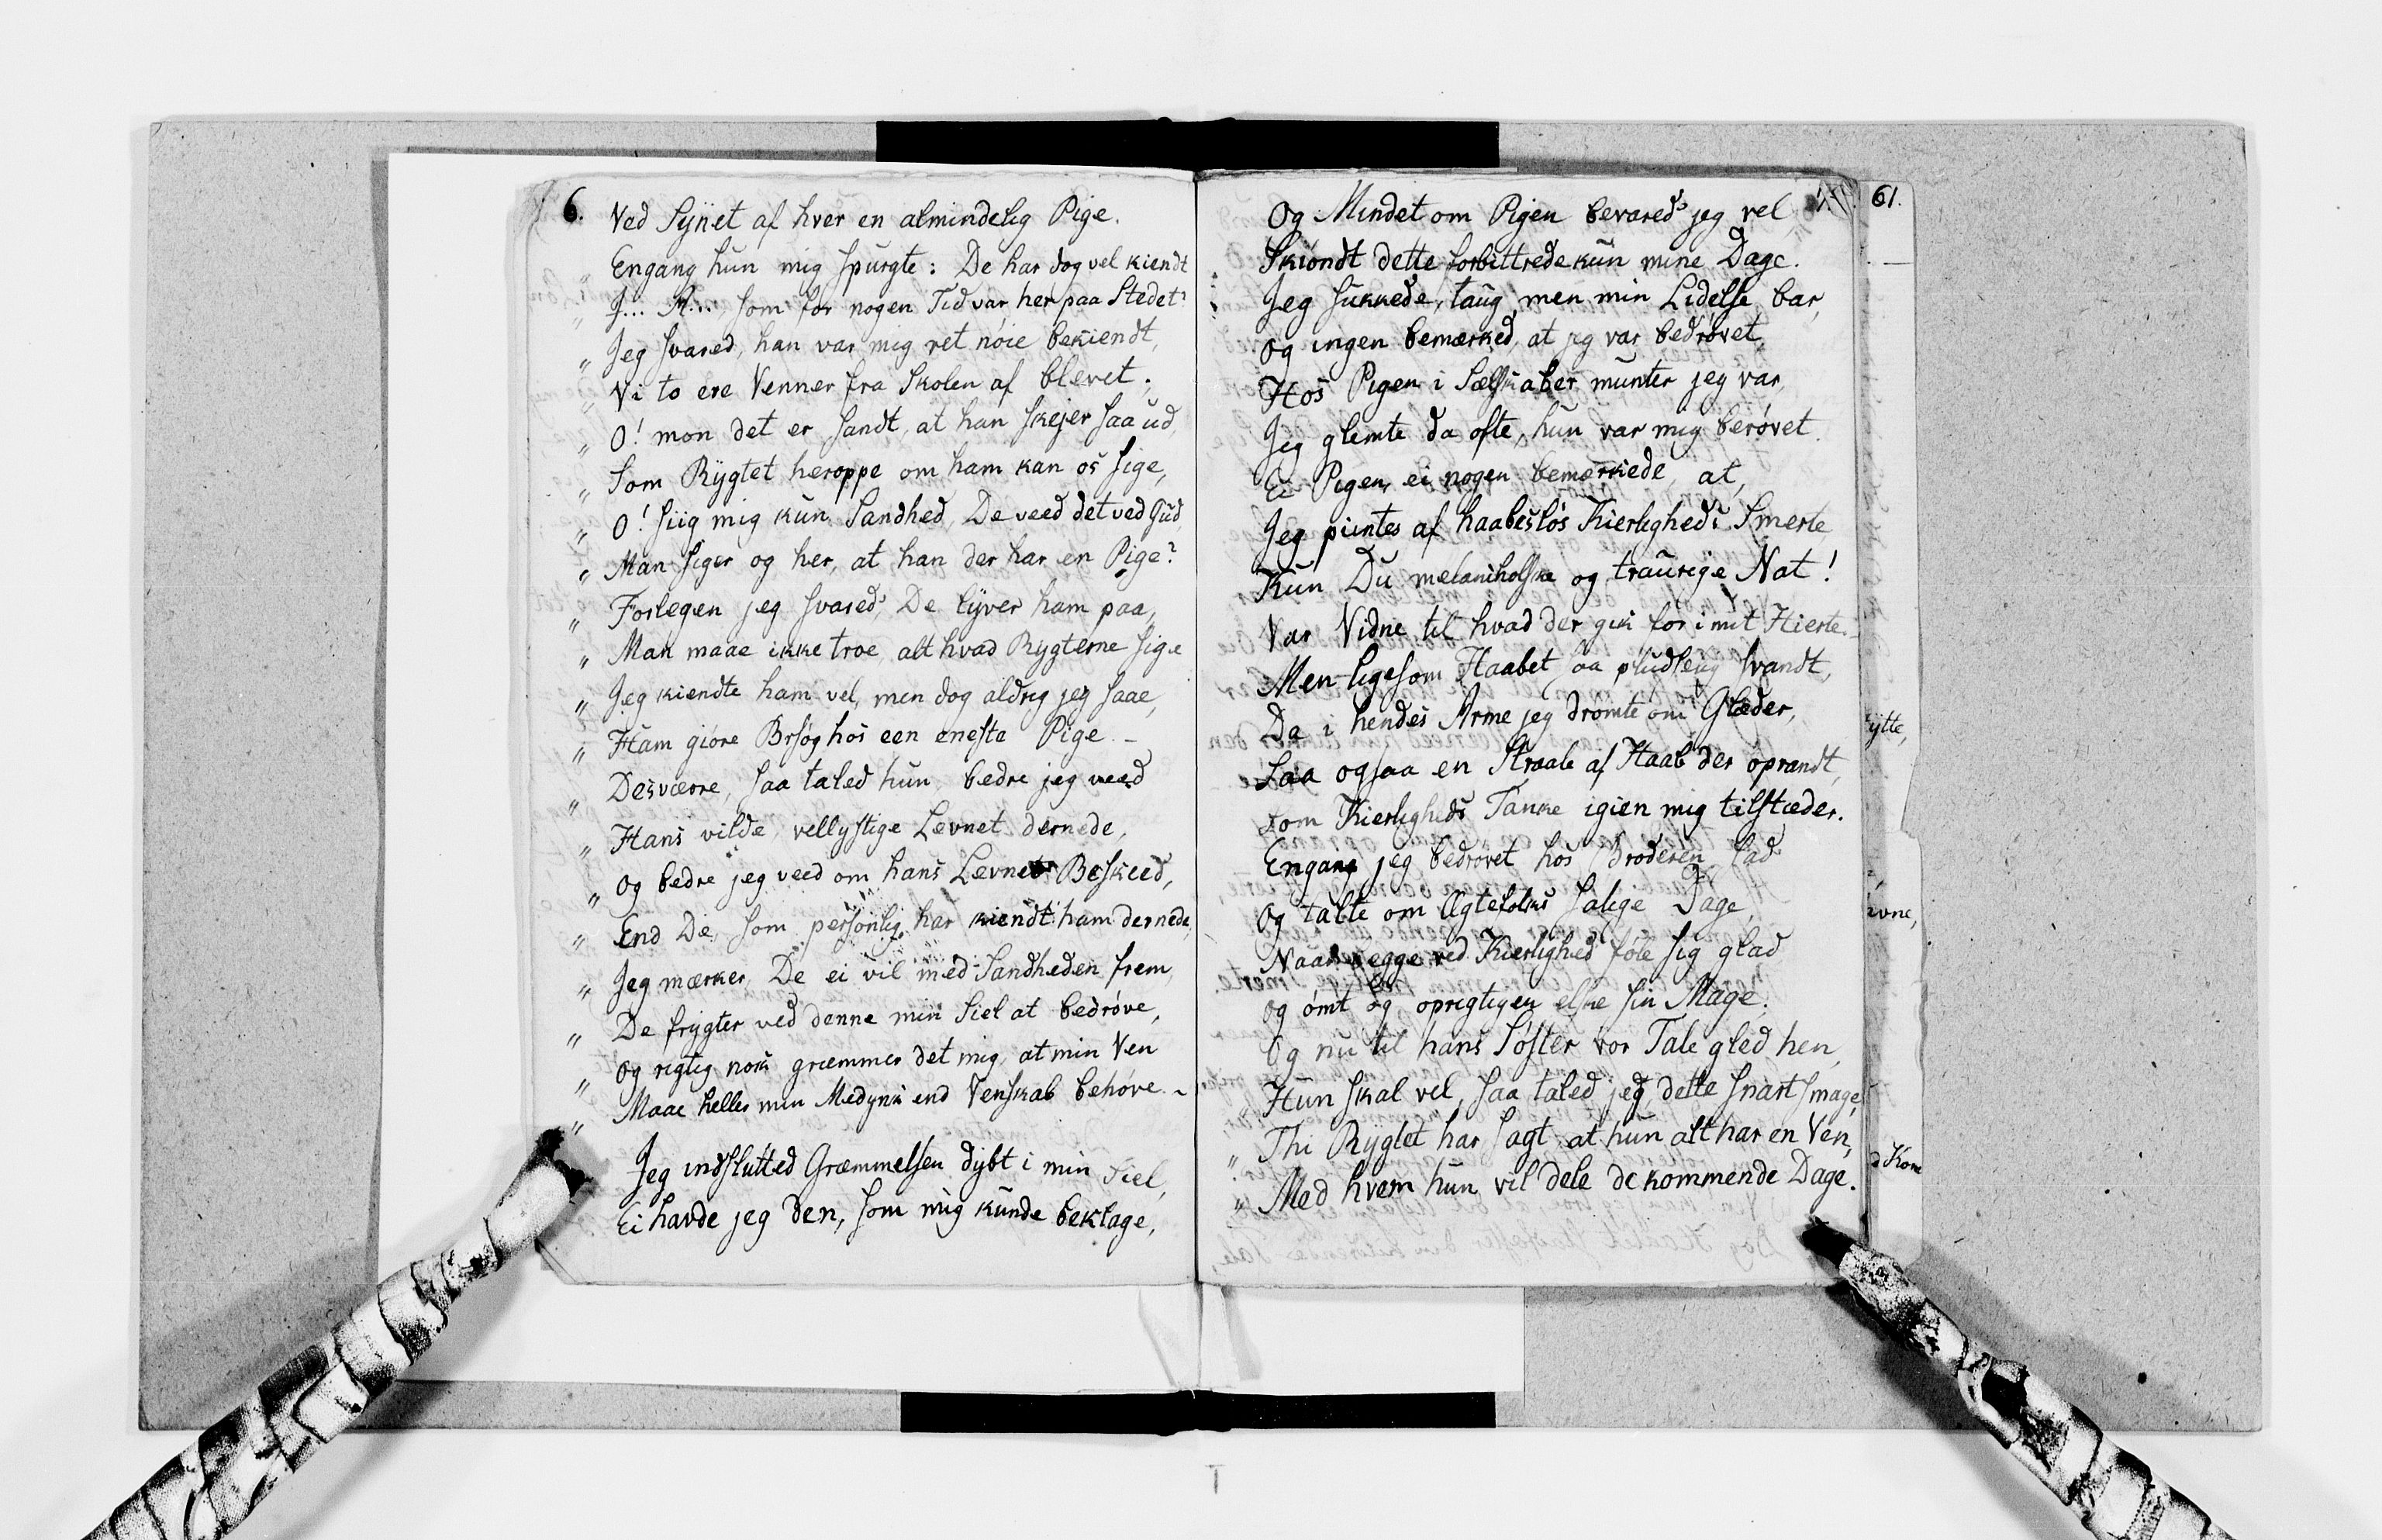 6.
Ved Synet af hver en almindelig Pige.
Engang hun mig spurgte: De har dog vel kiendt
„ J... R..., som for nogen Tid var her paa Stedet?
„ Jeg svared, han var mig ret nøie bekiendt,
„ Vi to ere Venner fra Skolen af blevet.
„ O! mon det er sandt, at han skejer saa ud,
„ Som Rygtet heroppe om ham kan os sige,
„ O! siig mig kun Sandhed, De veed det ved Gud,
„ Man siger og her, at han der har en Pige?
„ Forlegen jeg svared, De lyver ham paa,
„ Man maae ikke troe alt hvad Rygterne sige
„ Jeg kiendte ham vel, men dog aldrig jeg saae,
„ Ham giøre Besøg hos een eneste Pige –
„ Desværre, saa taled hun, bedre jeg veed
„ Hans vilde, vellystige Levnet dernede,
„ Og bedre jeg veed om hans Levnet Beskeed,
„ End De, som personlig har kiendt ham dernede,
„ Jeg mærker, De ei vil med Sandheden frem,
„ De frygter ved denne min Siel at bedrøve,
„ Og rigtig nok græmmer det mig, at min Ven
„ Maae heller min Medynk end Venskab behøve –
Jeg indslutted Græmmelsen dybt i min Siel,
Ei havde jeg den, som mig kunde beklage,
Og Mindet om Pigen bevared' jeg vel,
Skiøndt dette forbittrede kun mine Dage.
Jeg sukkede, taug, men min Lidelse bar,
Og ingen bemærked, at jeg var bedrøvet.
Hos Pigen i Sælskaber munter jeg var,
Jeg glemte da ofte, hun var mig berøvet.
Ei Pigen, ei nogen bemærkede, at,
Jeg piintes af haabesløs Kierligheds Smerte
Kun Du melancholske og traurige Nat!
Var Vidne til hvad der gik for i mit Hierte.
Men ligesom Haabet saa pludselig svandt,
Da i hendes Arme jeg drømte om Glæder,
Saa ogsaa en Straale af Haab der oprandt,
Som Kierligheds Tanke igien mig tilstæder.
Engang jeg bedrøvet hos Broderen sad
Og talte om Ægtefolks salige Dage,
Naar begge ved Kierlighed føle sig glad
Og ømt og oprigtigen elske sin Mage.
Og nu til hans Søster vor Tale gled hen,
„ Hun skal vel, saa taled jeg, dette snart smage,
„ Thi Rygtet har sagt, at hun alt har en Ven,
„ Med hvem hun vil dele de kommende Dage.
61.
ytte,
evne,